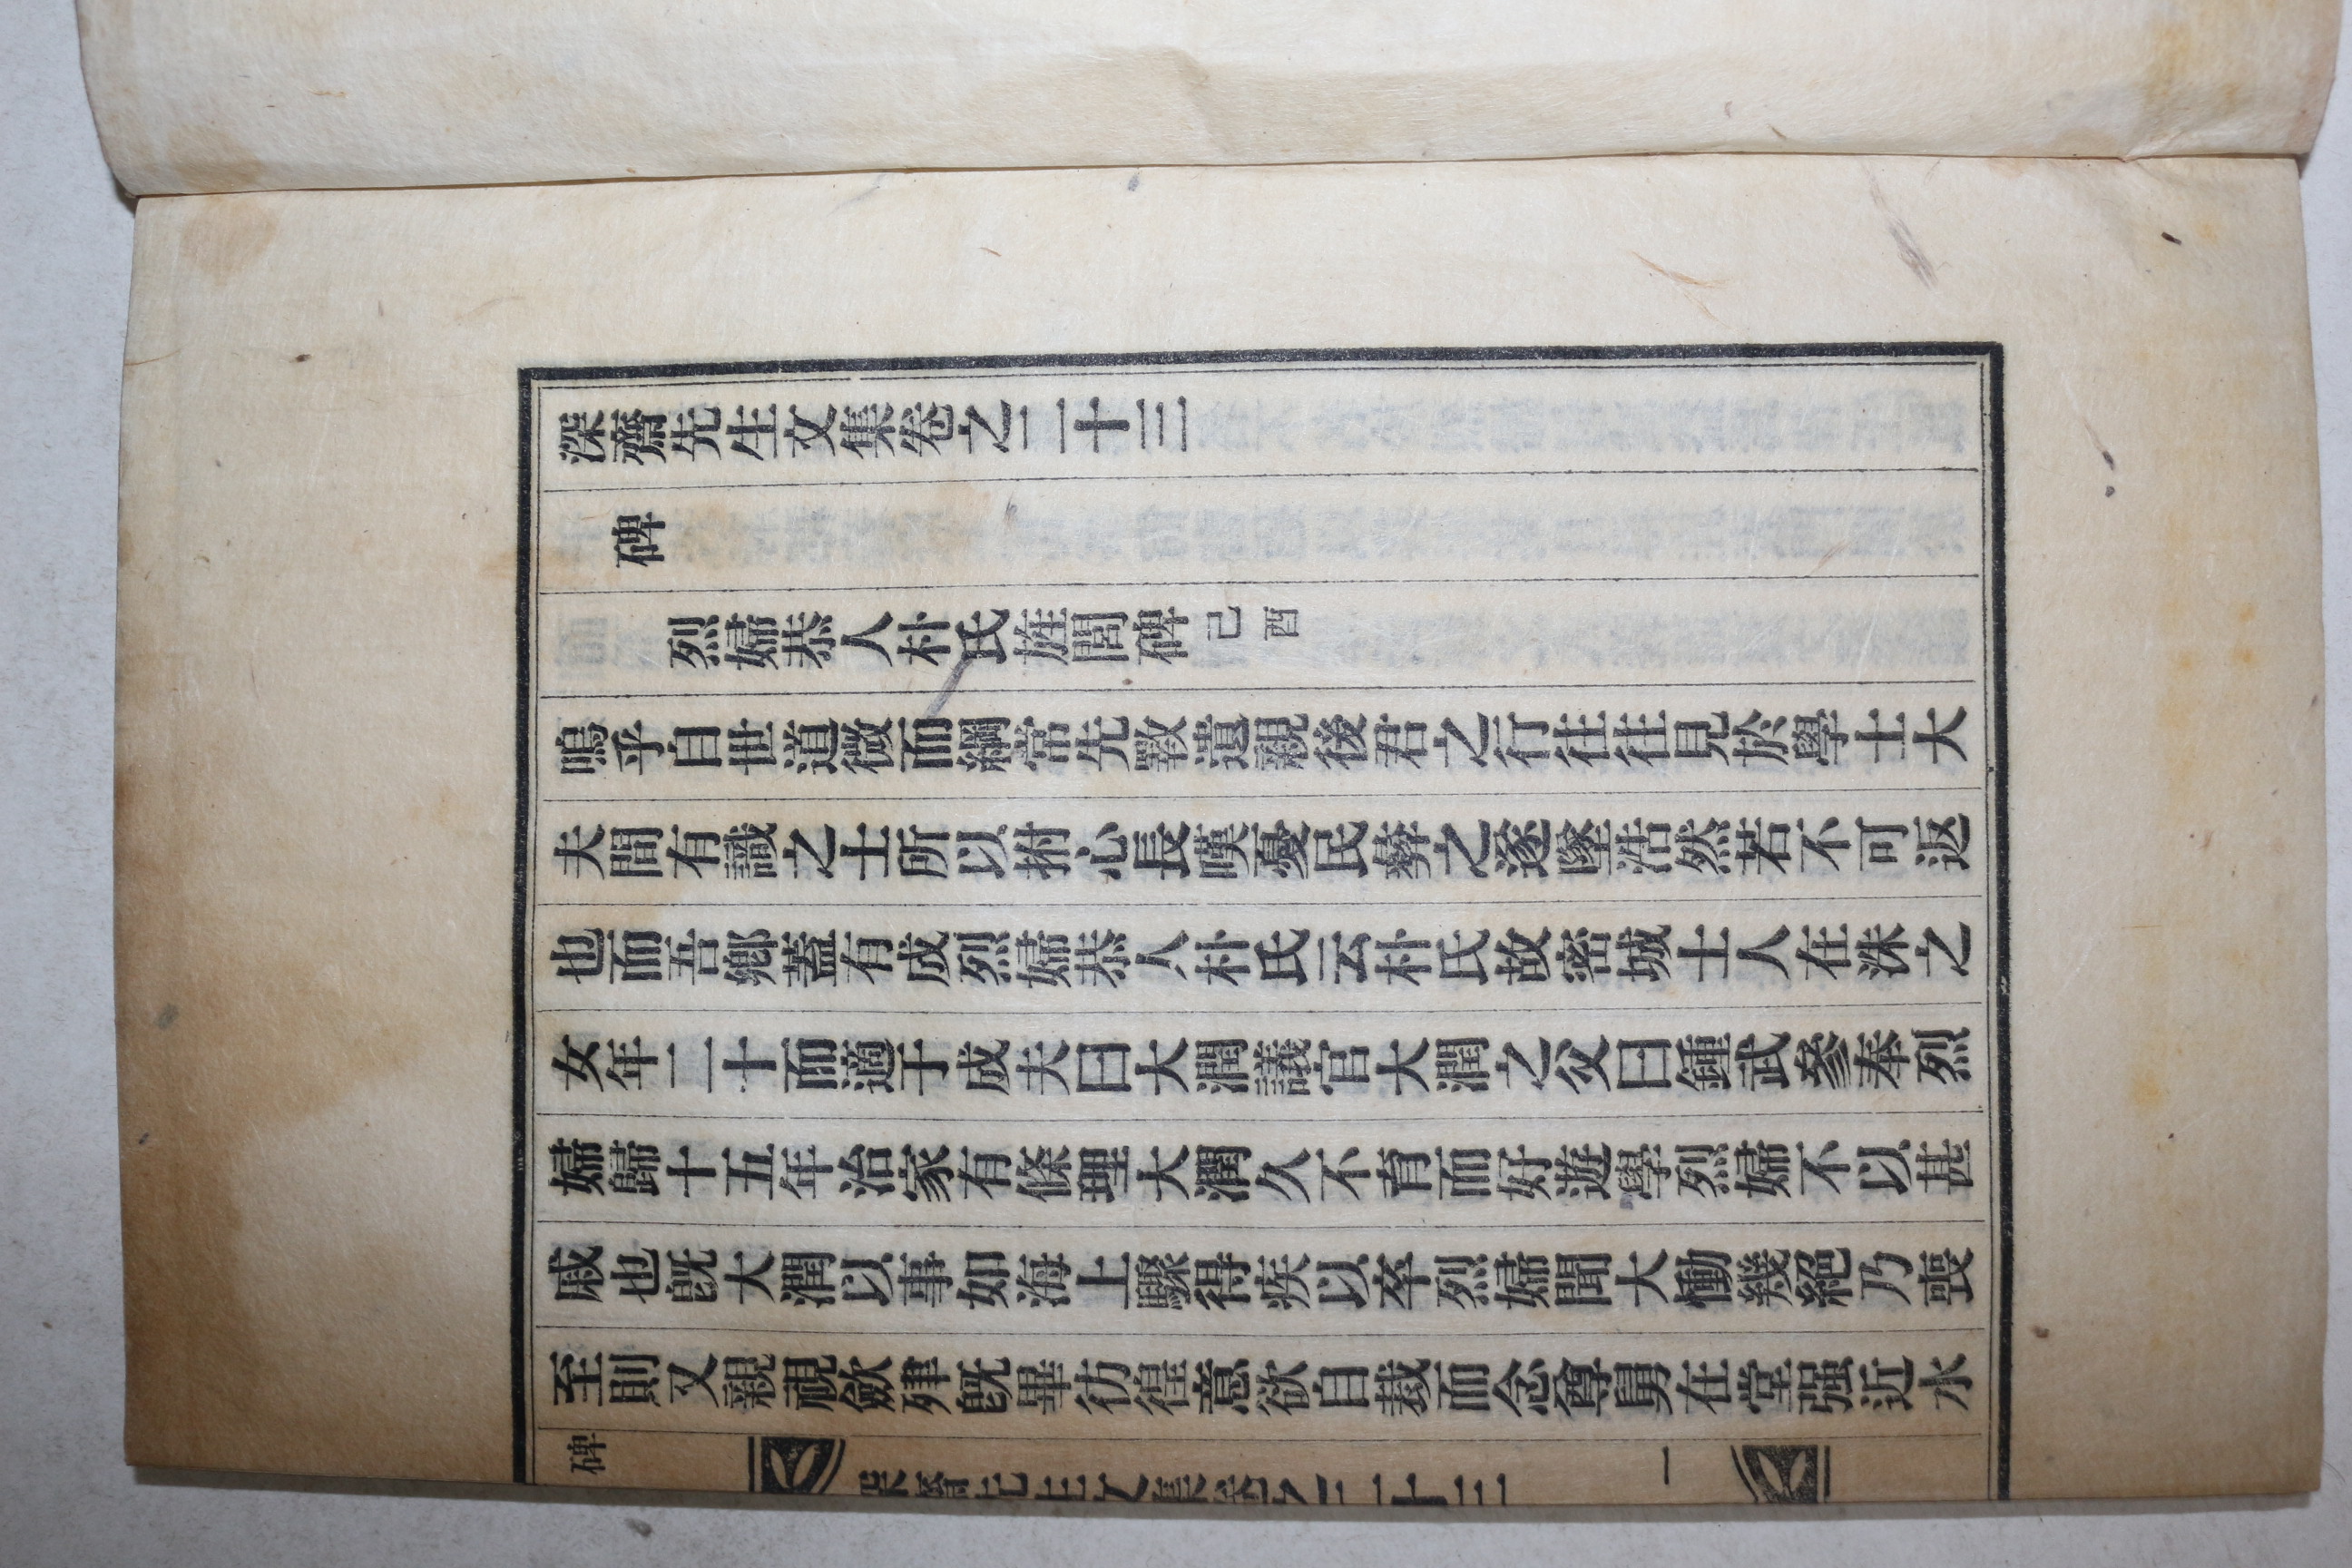 深齋先生文集卷之二十三
碑
烈婦恭人朴氏旌閭碑 己酉
嗚乎自世道微而綱常先斁遺親後君之行往往見於學士大
夫間有識之士所以拊心長嘆憂民彜之遂墜浩然若不可返
也而吾鄕蓋有成烈婦恭人朴氏云朴氏故密城士人在洙之
女年二十而適于成夫曰大潤議官大潤之父曰鍾武參奉烈
婦歸十五年治家有條理大潤久不育而好遊學烈婦不以甚
戚也旣大潤以事如海上驟得疾以卒烈婦聞大慟幾絕乃喪
至則又親視斂肂旣畢彷徨意欲自裁而念尊舅在堂强近水
碑
深齋先生文集卷之二十三
一